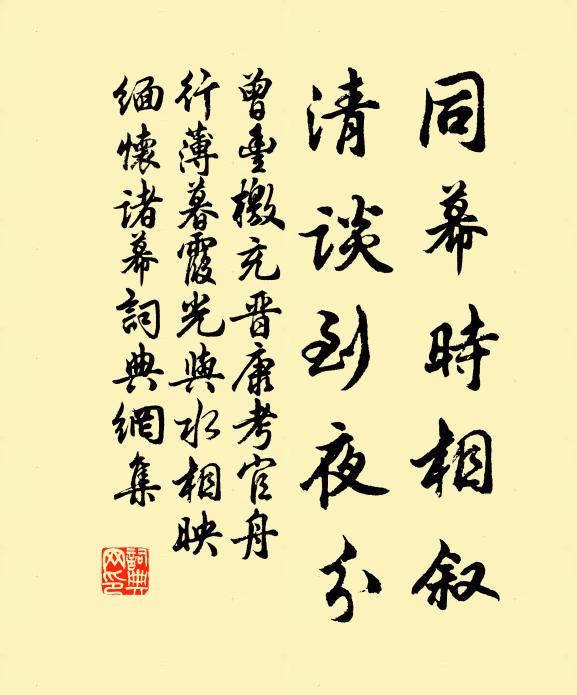 同幕時相叙
清談到夜分
曾豐檄充晋康考官舟
行薄暮霞光與水相映
緬懷诸幕詞典網集
詞典网印